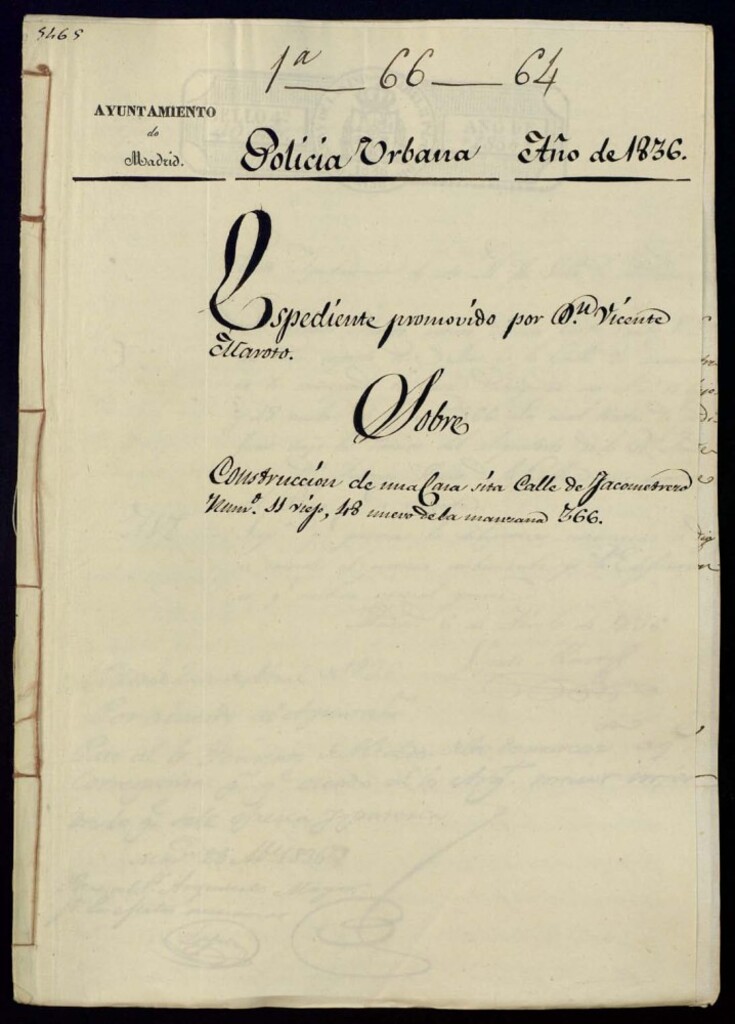 5465
1ª 66 64
AYUNTAMIENTO
de
Madrid.
Policia Urbana Año de 1836.
Espediente promovido por Dn. Vicente
Maroto.
Sobre
Construccion de una Casa sita Calle de Jacometrezo
Numº. 11 viejo, 48 nuevo de la manzana 366.